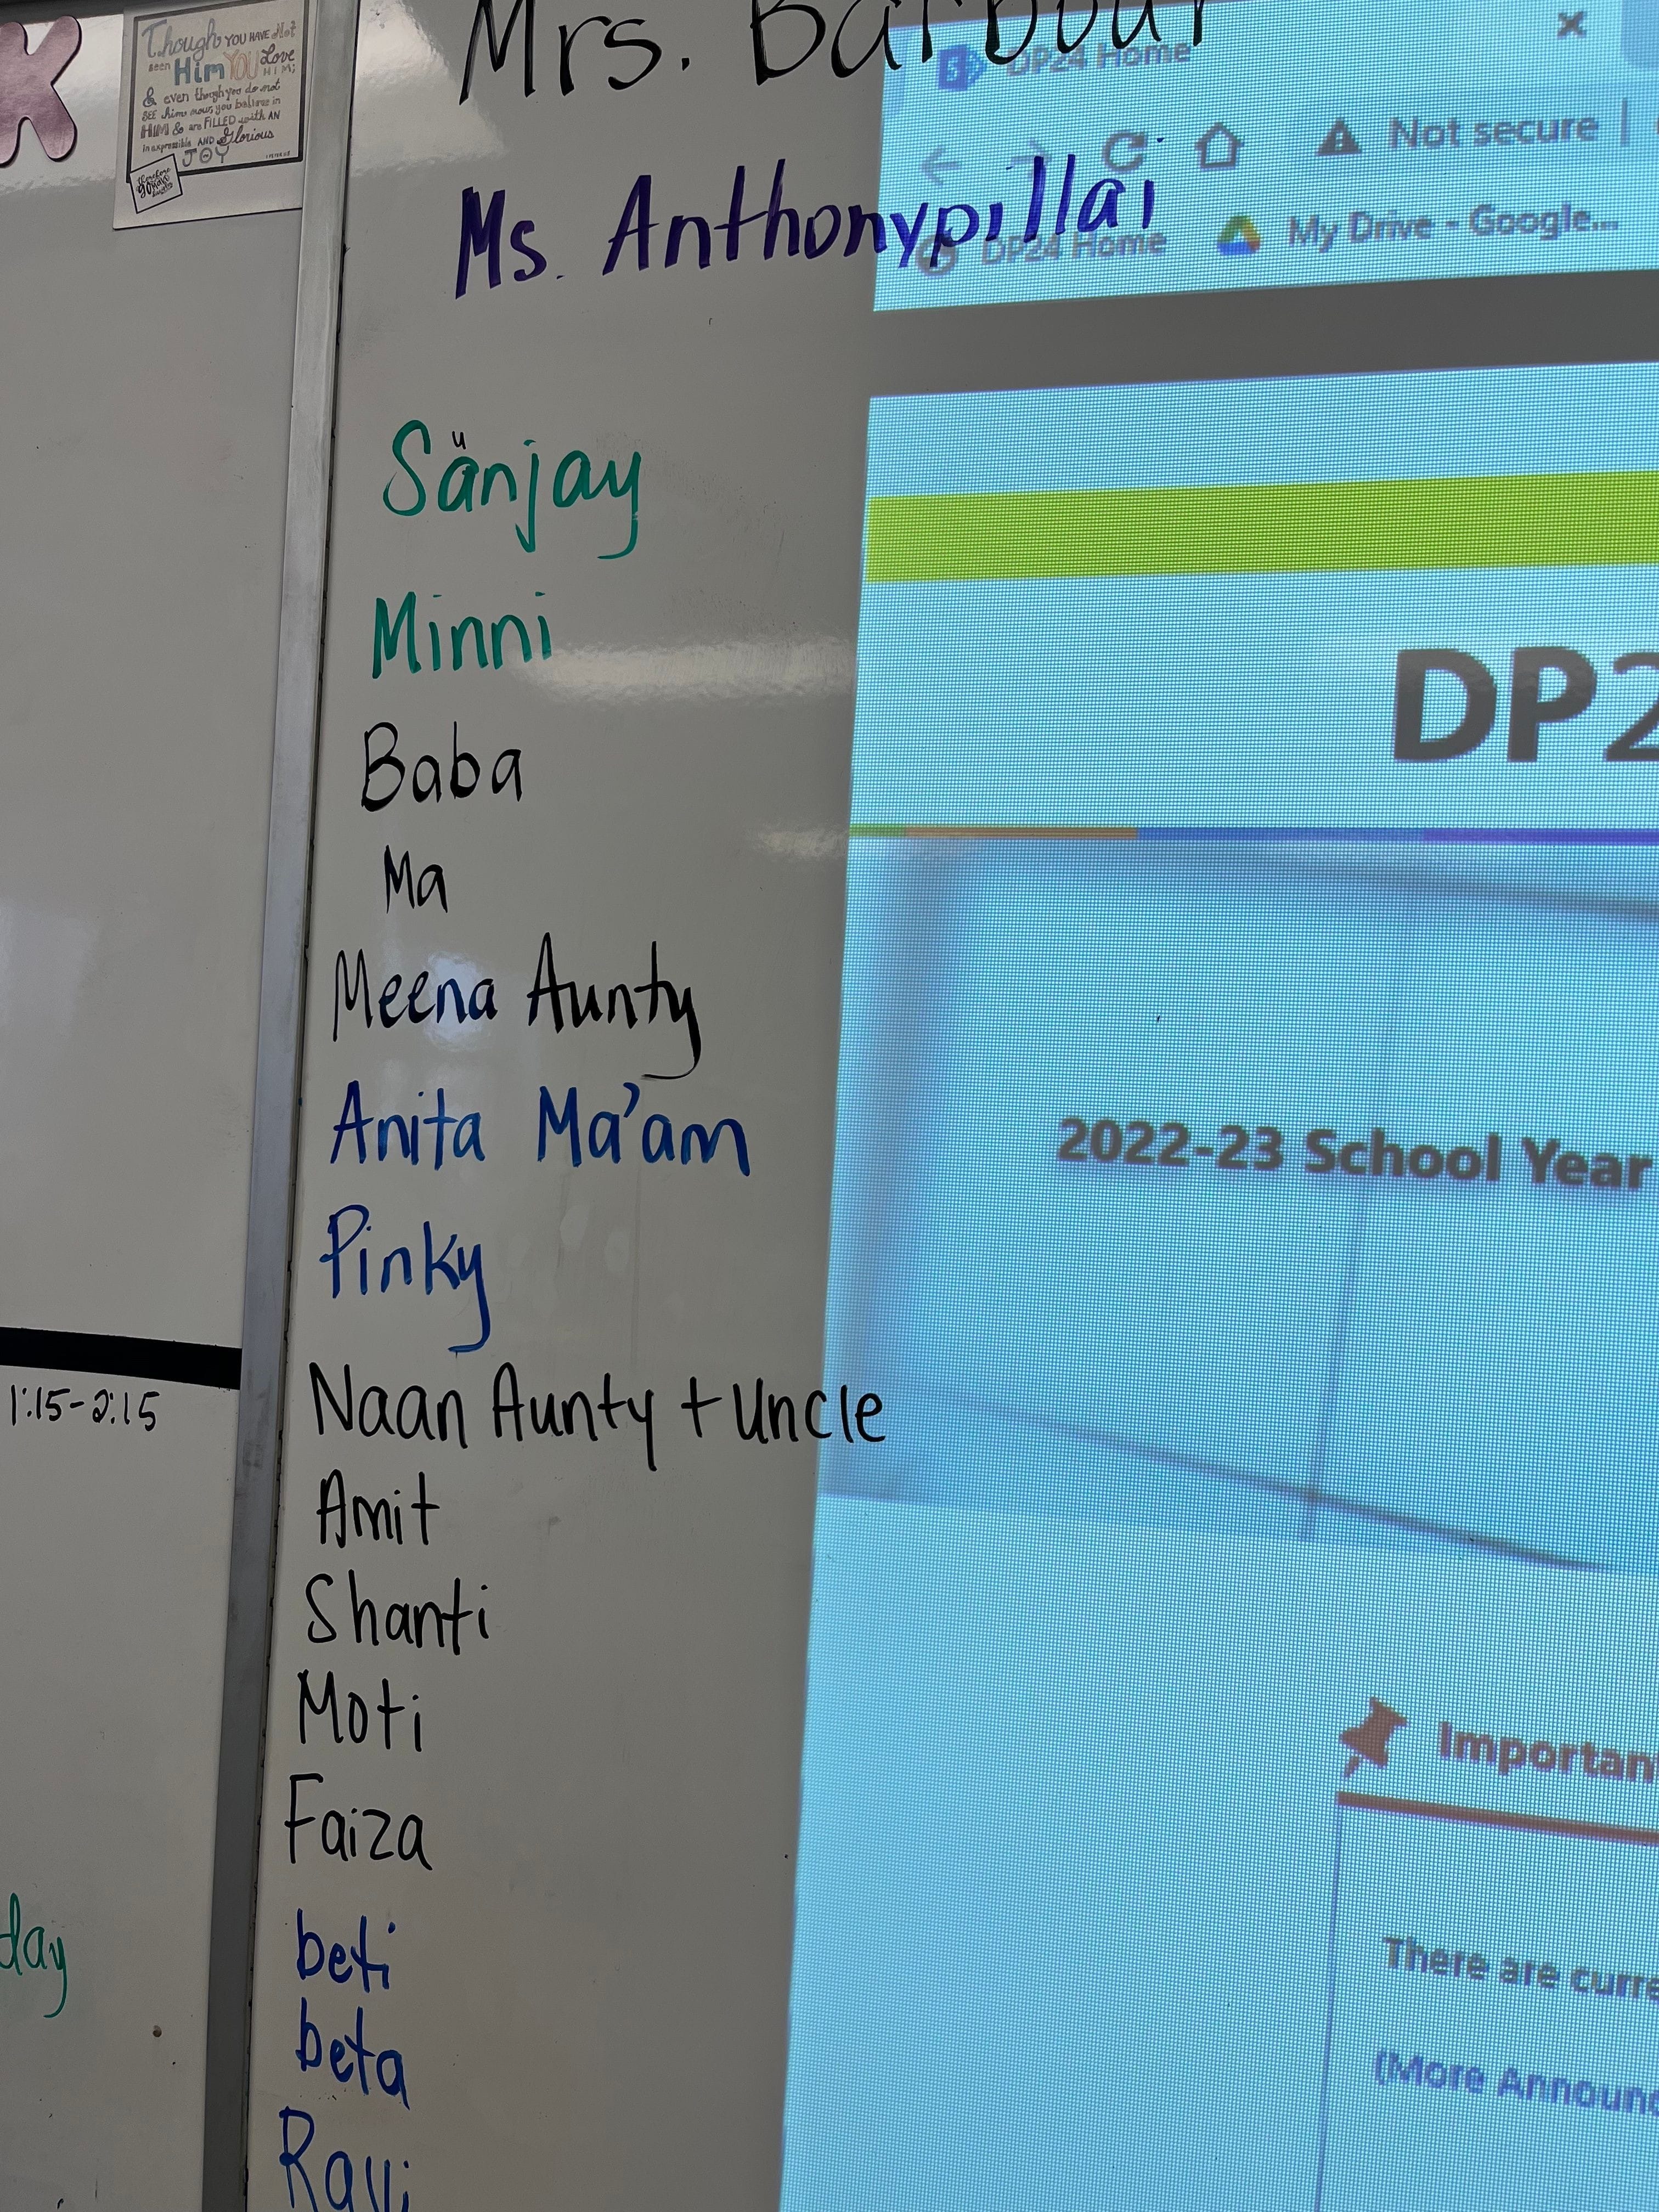 Though YOU HAVE Not
seen Him YOU Love
HIM;
& even though you do not
SEE him now, you believe in
HIM & are FILLED with AN
inexpressible AND Glorious
JOY
1 PETER 1:8
Mrs. Barbour
Ms. Anthonypillai
DP24 Home
Not secure
DP24 Home
My Drive - Google...
Sänjay
u
Minni
Baba
Ma
Meena Aunty
Anita Ma'am
Pinky
Naan Aunty + Uncle
Amit
Shanti
Moti
Faiza
beti
beta
Ravi
1:15-2:15
day
DP2
2022-23 School Year
Important
There are curre
(More Announc